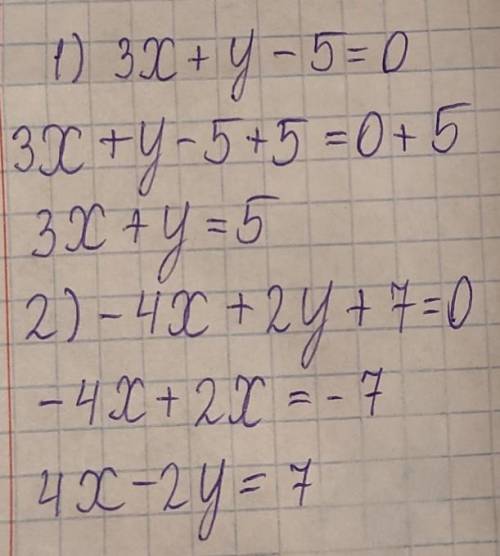 1) 3x + y - 5 = 0
3x + y - 5 + 5 = 0 + 5
3x + y = 5
2) - 4x + 2y + 7 = 0
- 4x + 2x = - 7
4x - 2y = 7